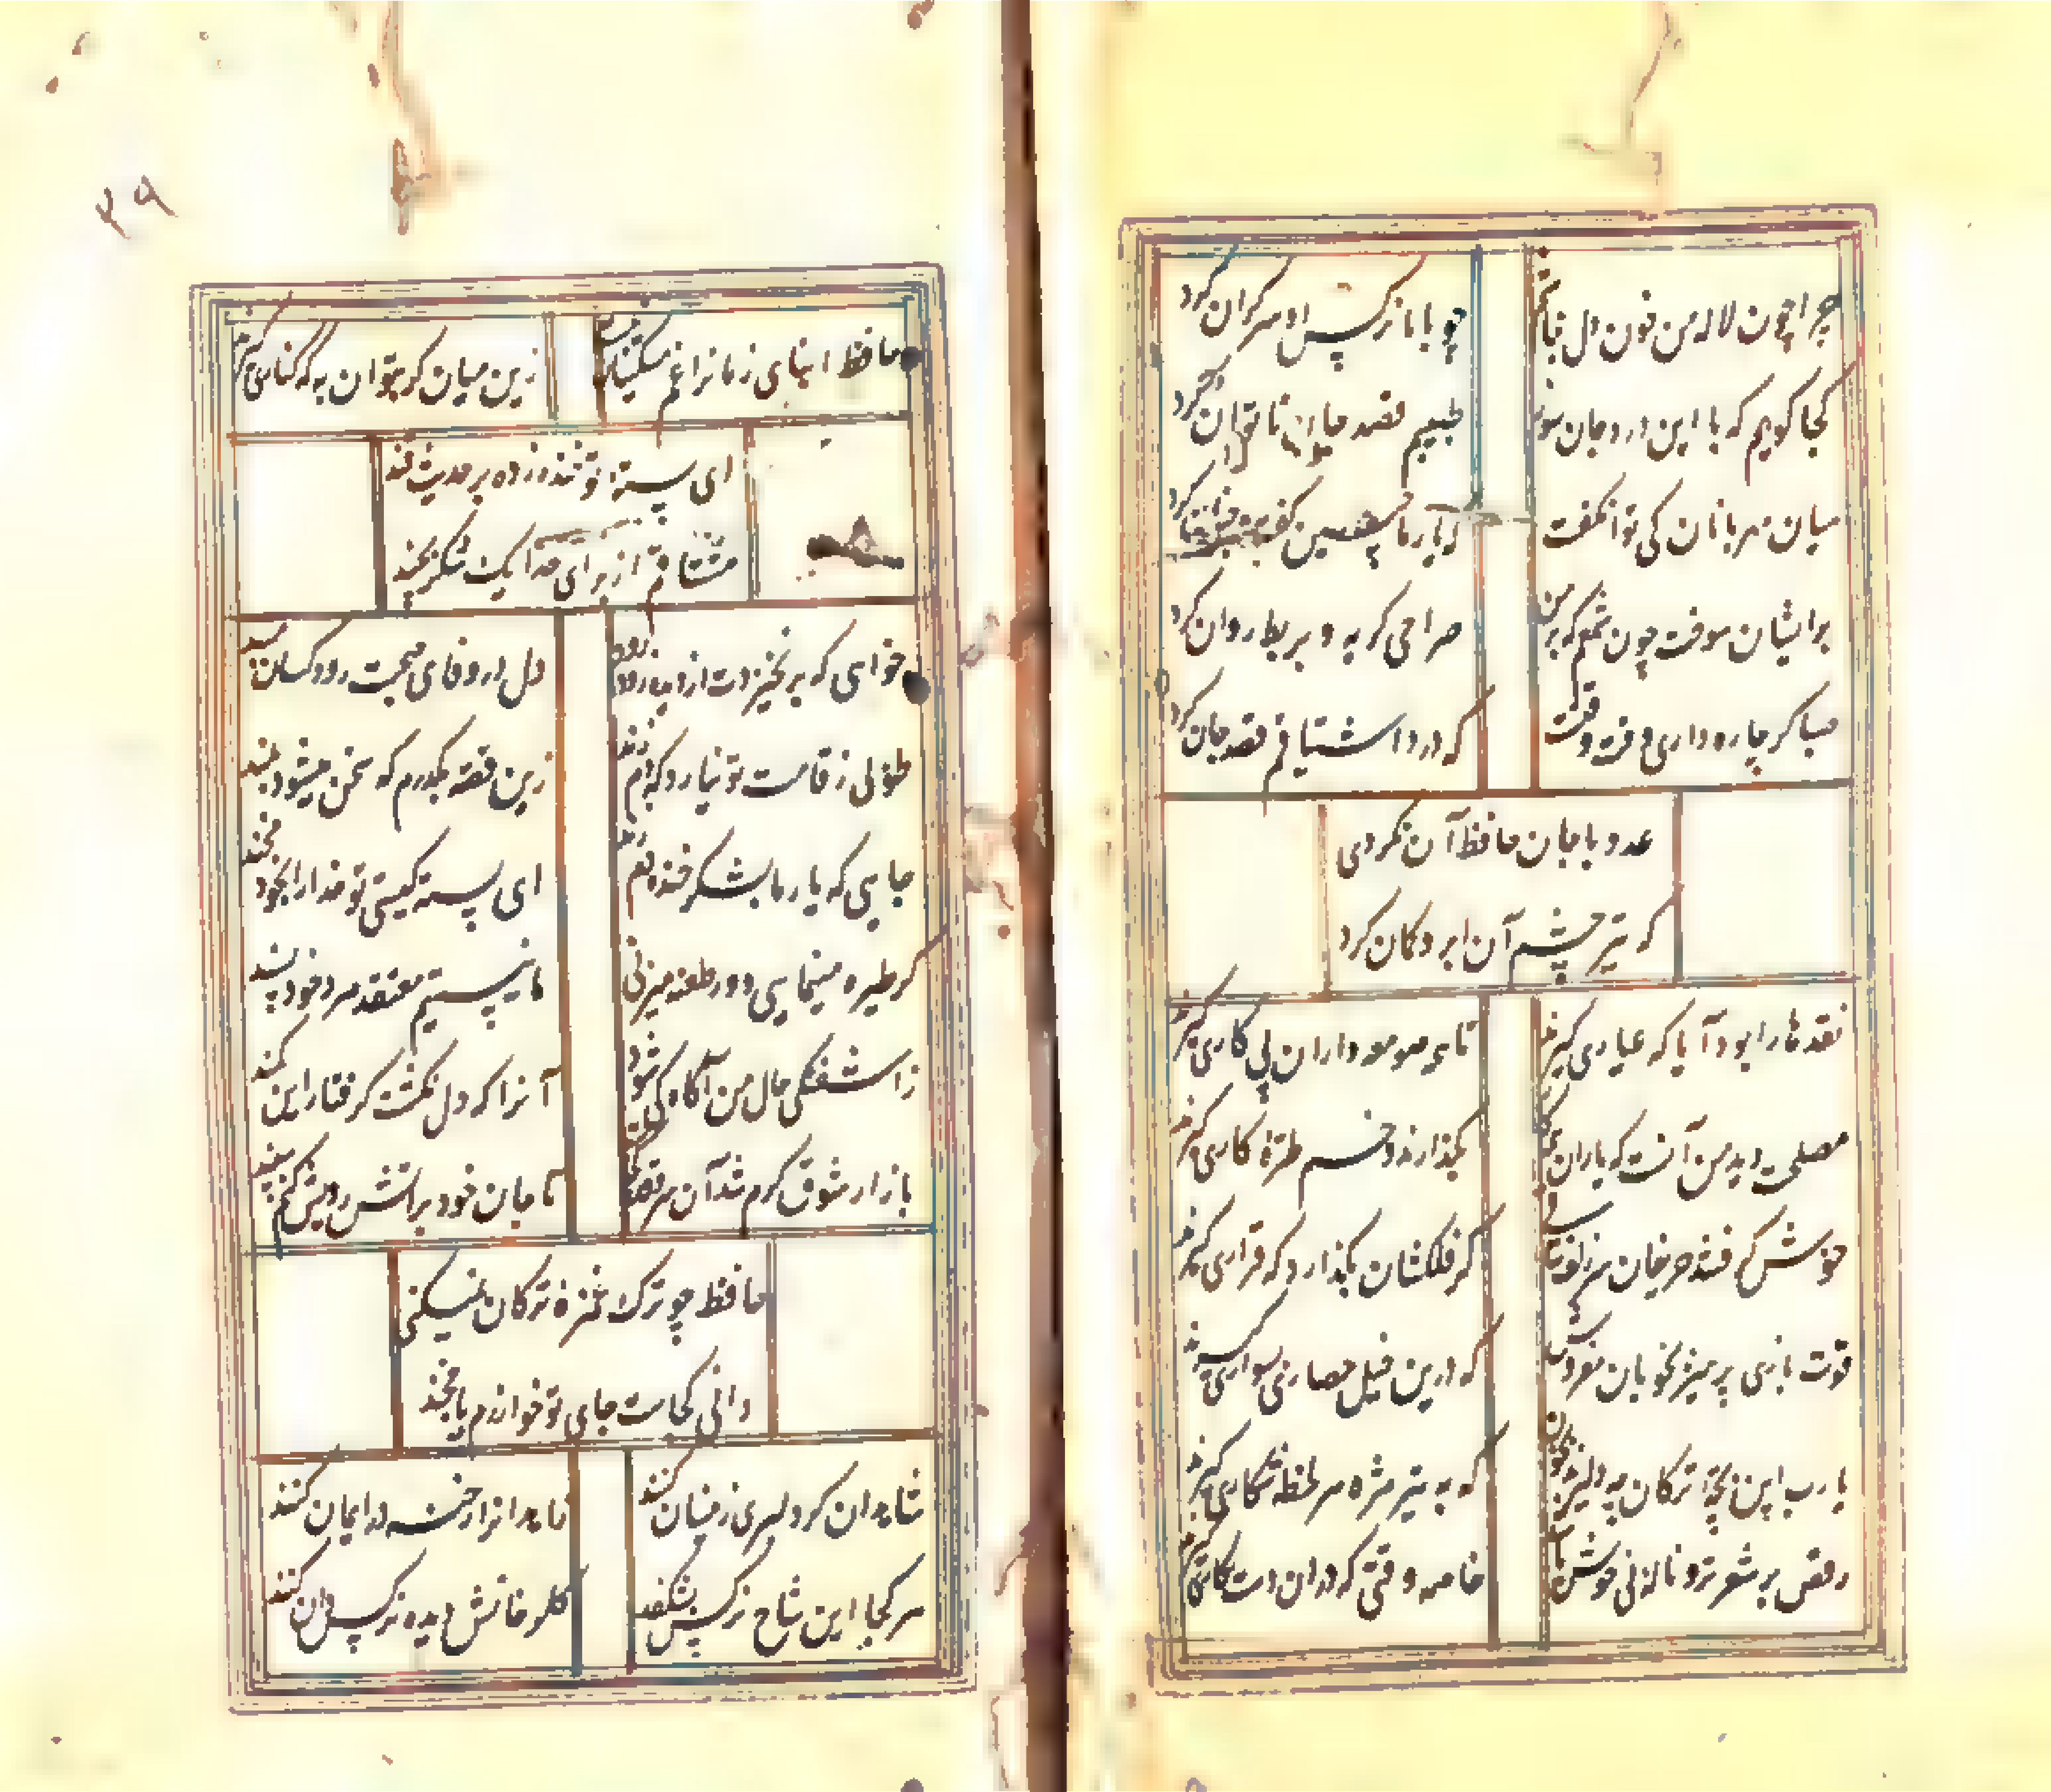 چرا چون لاله من خون دل نباشم
چو با ما نرگس او سرگران کرد
کجا گویم که با این درد جان سوز
طبیبم قصد جان ناتوان کرد
میان مهربانان کی توان گفت
که یار ما چنین گفت و چنان کرد
بر ایشان سوخت چون شمعم که بر من
صراحی گریه و بربط روان کرد
صبا گر چاره داری وقت وقتست
که درد اشتیاقم قصد جان کرد
عدو با جان حافظ آن نکردی
که تیر چشم آن ابرو کمان کرد
نقدها را بود آیا که عیاری گیرند
تا همه صومعه داران پی کاری گیرند
مصلحت دید من آنست که یاران
بگذارند و خم طره کاری گیرند
خوش گرفتند حریفان سر زلف
گر فلکشان بگذارد که قراری گیرند
قوت بازوی پرهیز بخوبان مفروش
که درین خیل حصاری بسواری گیرند
یارب این بچه ترکان چه دلیرند بخون
که به تیر مژه هر لحظه شکاری گیرند
رقص بر شعر تر و ناله نی خوش باشد
خاصه وقتی که در آن دست نگاری گیرند
۳۹
حافظ ابنای زمانرا غم مسکینان نیست
زین میان گر بتوان به که کناری گیرند
ای پسته تو خنده زده بر حدیث قند
مشتاقم از برای خدا یک شکر بخند
خواهی که برنخیزدت از دیده رود رود
دل در وفای صحبت رود کسان مبند
طوبی ز قامت تو نیارد که دم زند
زین قصه بگذرم که سخن میشود بلند
جایی که یار ما بشکر خنده دم زند
ای پسته کیستی تو خدا را بخود مخند
گر طیره مینمایی و در طعنه میزنی
ما نیستیم معتقد مرد خود پسند
ز آشفتگی حال من آگاه کی شود
آنرا که دل نگشت گرفتار این کمند
بازار شوق گرم شد آن سرو قد کجاست
تا جان خود بر آتش رویش کنم سپند
حافظ چو ترک غمزه ترکان نمیکنی
دانی کجاست جای تو خوارزم یا خجند
شاهدان گر دلبری زینسان کنند
زاهدانرا رخنه در ایمان کنند
هر کجا این شاخ نرگس بشکفد
گلرخانش دیده نرگس دان کنند